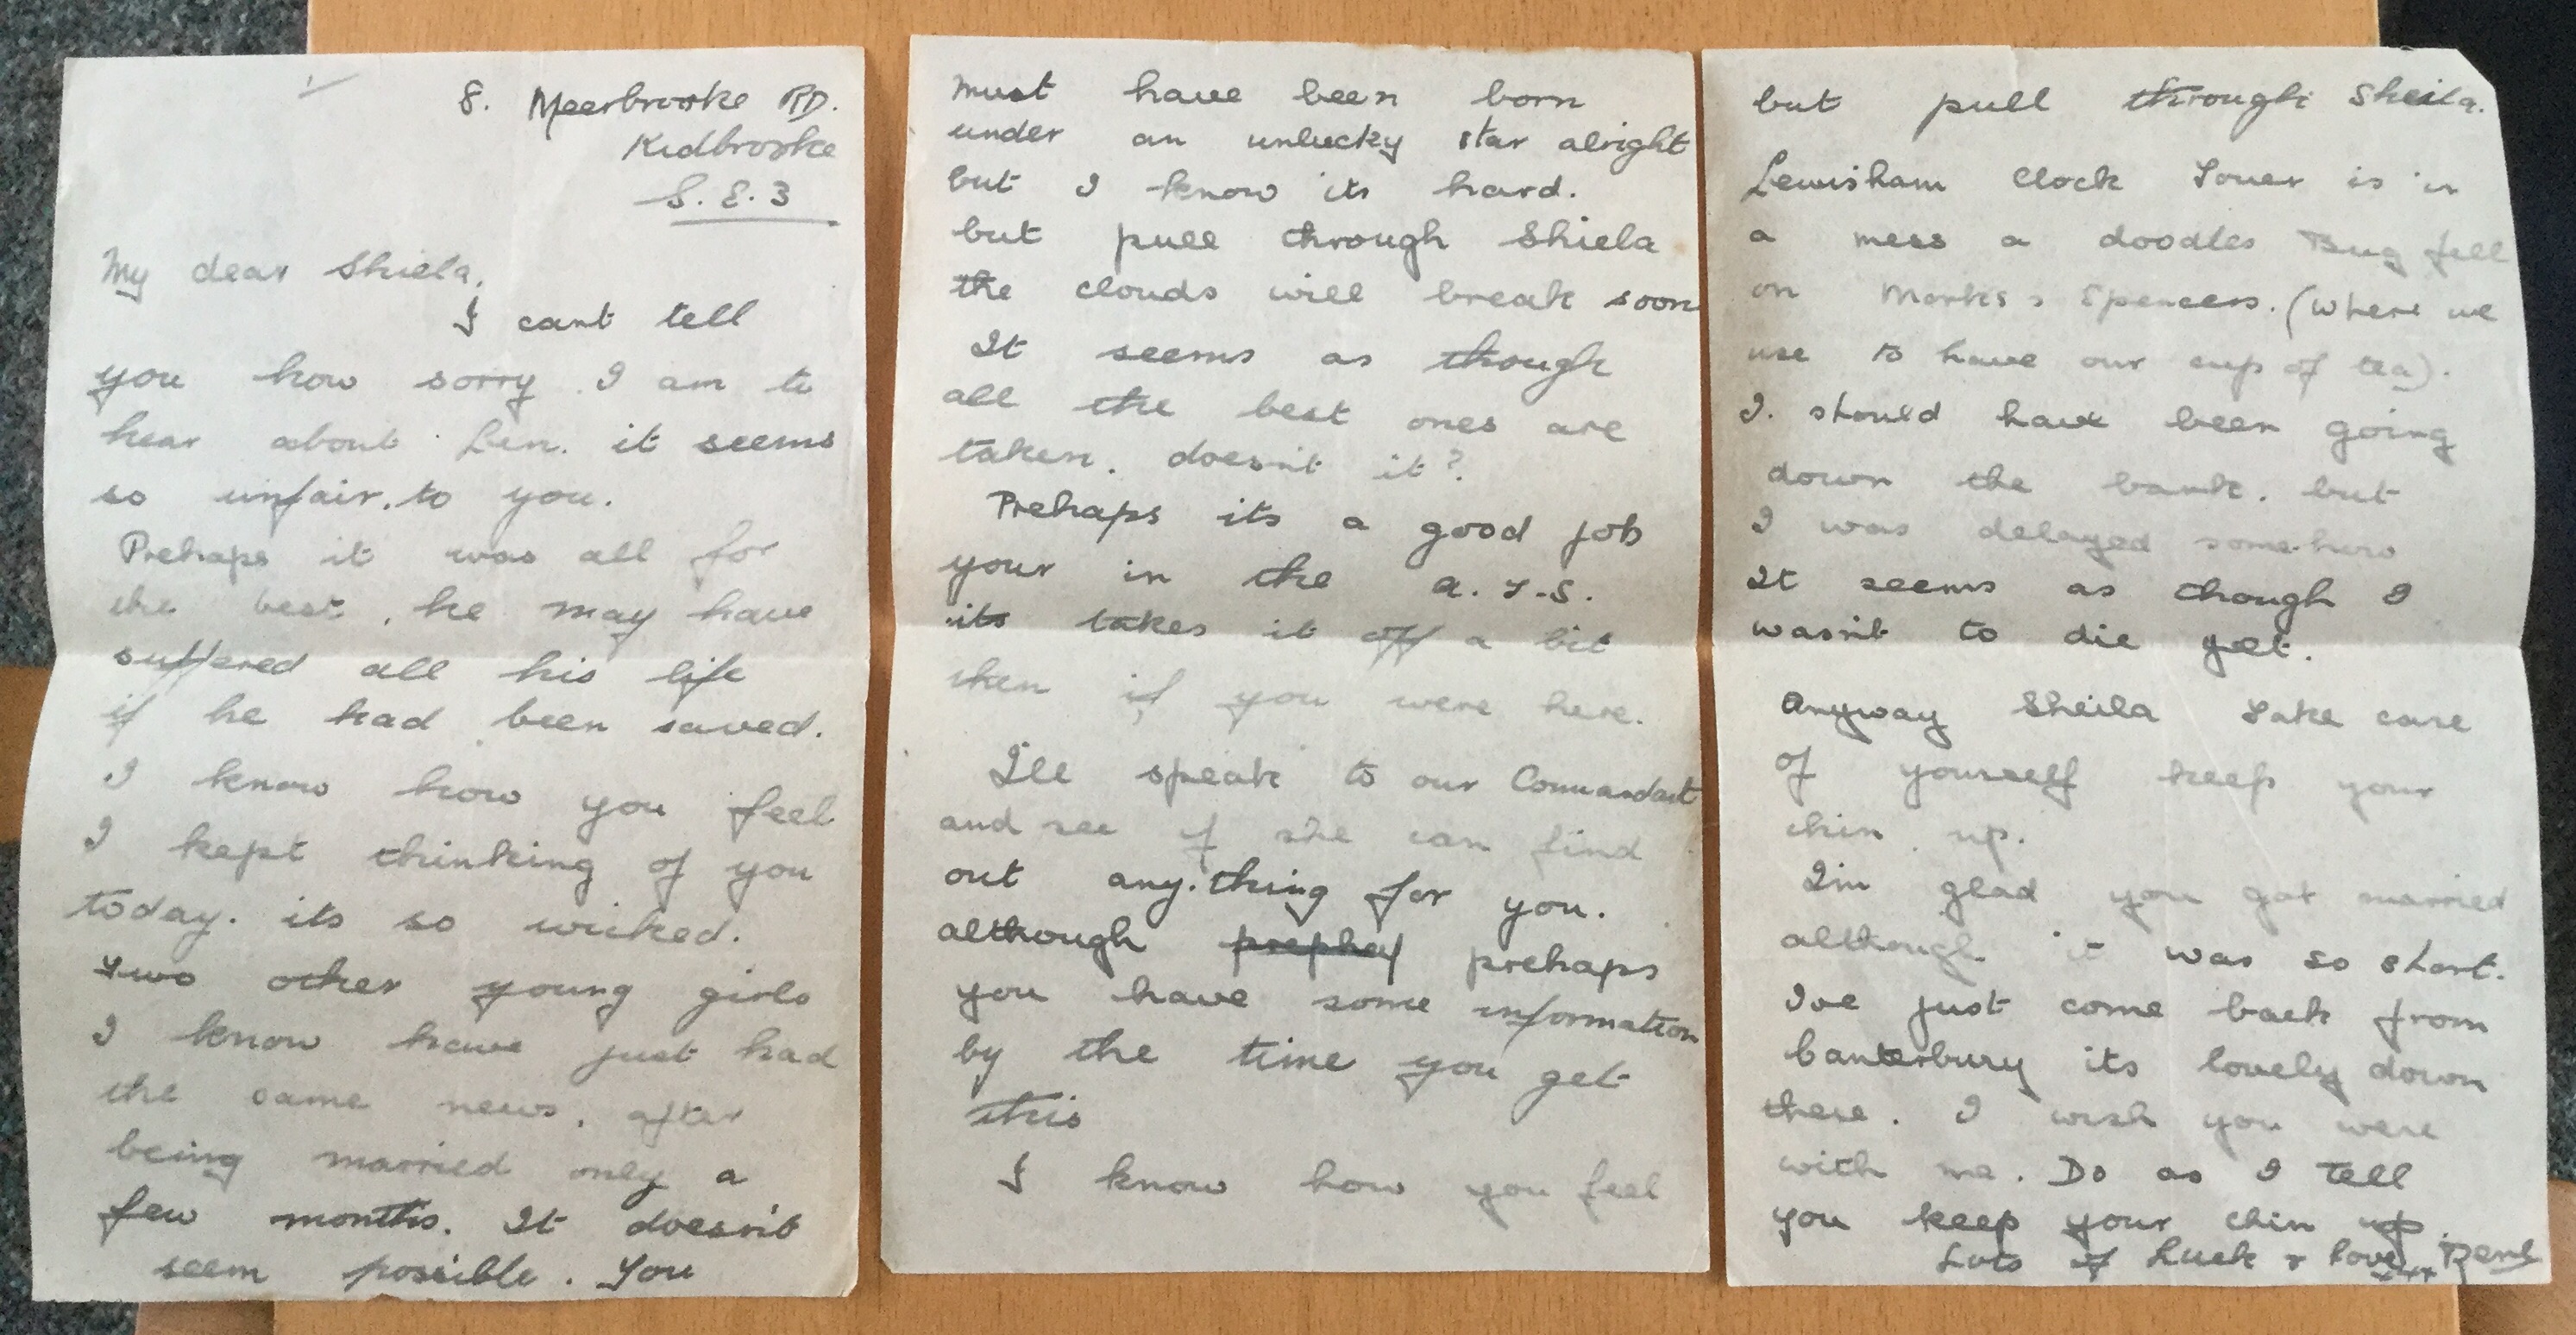 8. Meerbrooke RD.
Kidbrooke
S.E.3
My dear Shiela,
I cant tell
you how sorry I am to
hear about Len. it seems
so unfair. to you.
Prehaps it was all for
the best, he may have
suffered all his life
if he had been saved.
I know how you feel
I kept thinking of you
today. its so wicked.
Two other young girls
I know have just had
the same news, after
being married only a
few months. It doesn't
seem possible. You
must have been born
under an unlucky star alright
but I know its hard.
but pull through Shiela
the clouds will break soon
It seems as though
all the best ones are
taken. doesn't it?
Prehaps its a good job
your in the A.T.S.
its takes it off a bit
then if you were here.
I'll speak to our Commandant
and see if she can find
out any.thing for you.
although prehaps
you have some information
by the time you get
this
I know how you feel
but pull through Sheila.
Lewisham Clock Tower is in
a mess a doodles Bug fell
on Marks & Spencers. (Where we
use to have our cup of tea).
I. should have been going
down the bank. but
I was delayed somehow
It seems as though I
wasn't to die yet.
Anyway Sheila Take care
of yourself keep your
chin up.
I'm glad you got married
although it was so short.
I've just come back from
Canterbury its lovely down
there. I wish you were
with me. Do as I tell
you keep your chin up.
Lots of Luck & love xxx Rene